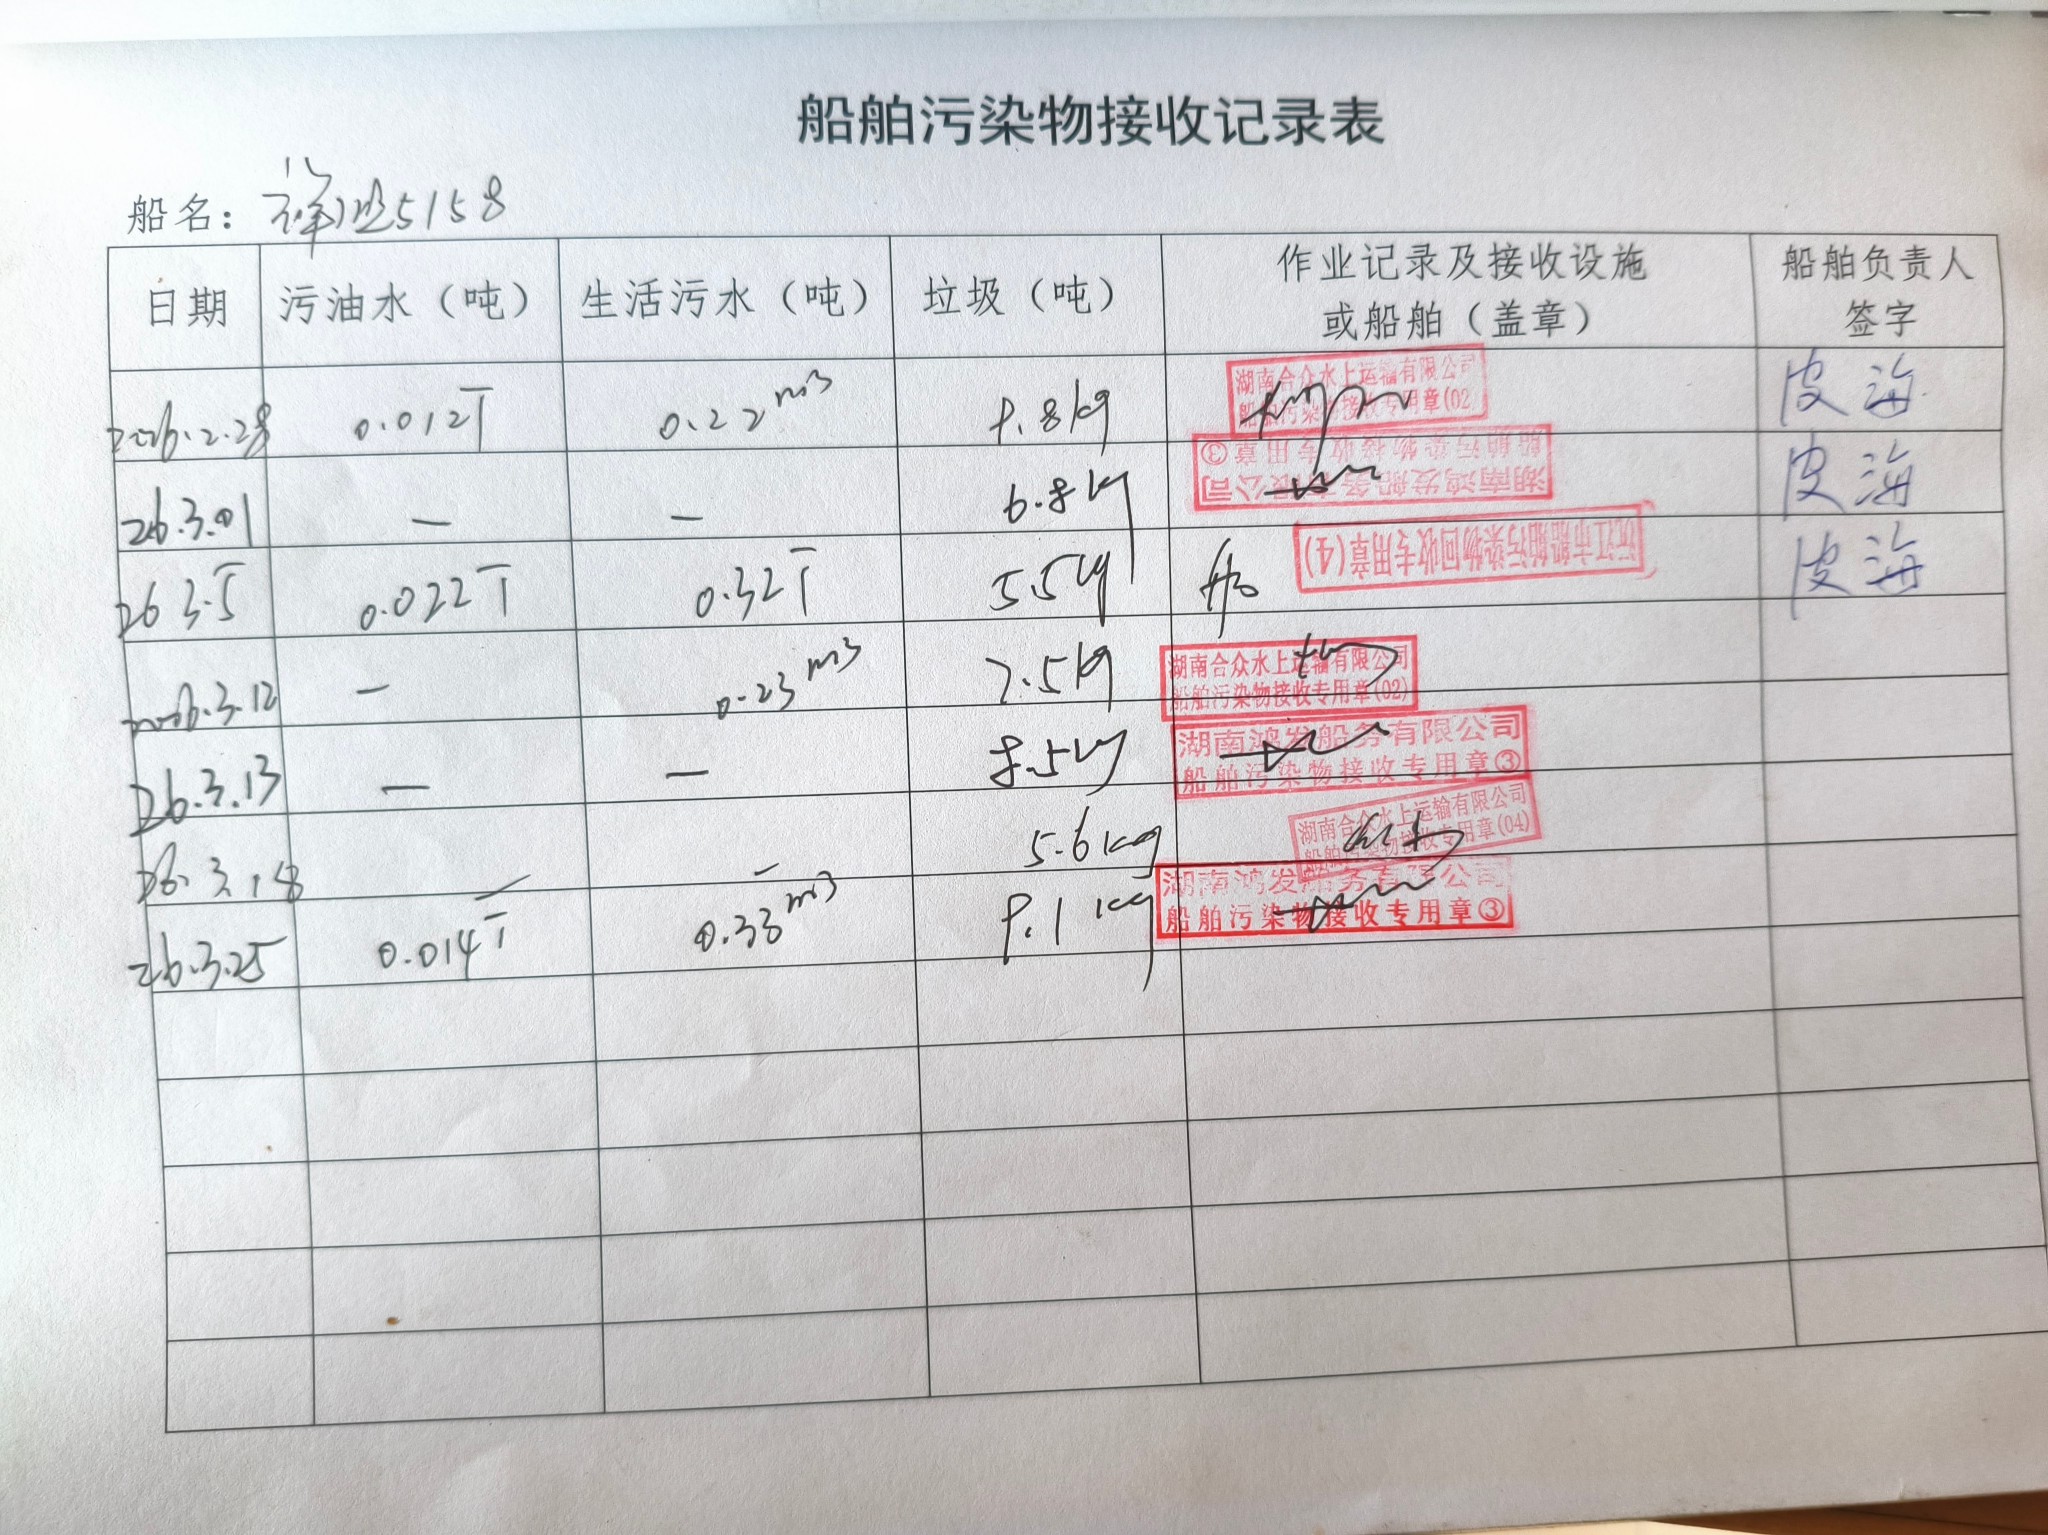 船舶污染物接收记录表
船名：祥旭5158
日期 污油水（吨） 生活污水（吨） 垃圾（吨） 作业记录及接收设施或船舶（盖章） 船舶负责人签字
2026.2.28 0.012T 0.22m3 9.8kg 湖南合众水上运输有限公司 船舶污染物接收专用章(02 皮海
26.3.01 — — 6.8kg 湖南鸿发船务有限公司 船舶污染物接收专用章③ 皮海
26 3.5 0.022T 0.32T 5.5kg 沅江市船舶污染物回收专用章(4) 皮海
2026.3.12 — 0.23m3 7.5kg 湖南合众水上运输有限公司 船舶污染物接收专用章(02)
26.3.13 — — 8.5kg 湖南鸿发船务有限公司 船舶污染物接收专用章③
26.3.18 — — 5.6kg 湖南合众水上运输有限公司 船舶污染物接收专用章(04)
26.3.25 0.014T 0.33m3 9.1kg 湖南鸿发船务有限公司 船舶污染物接收专用章③